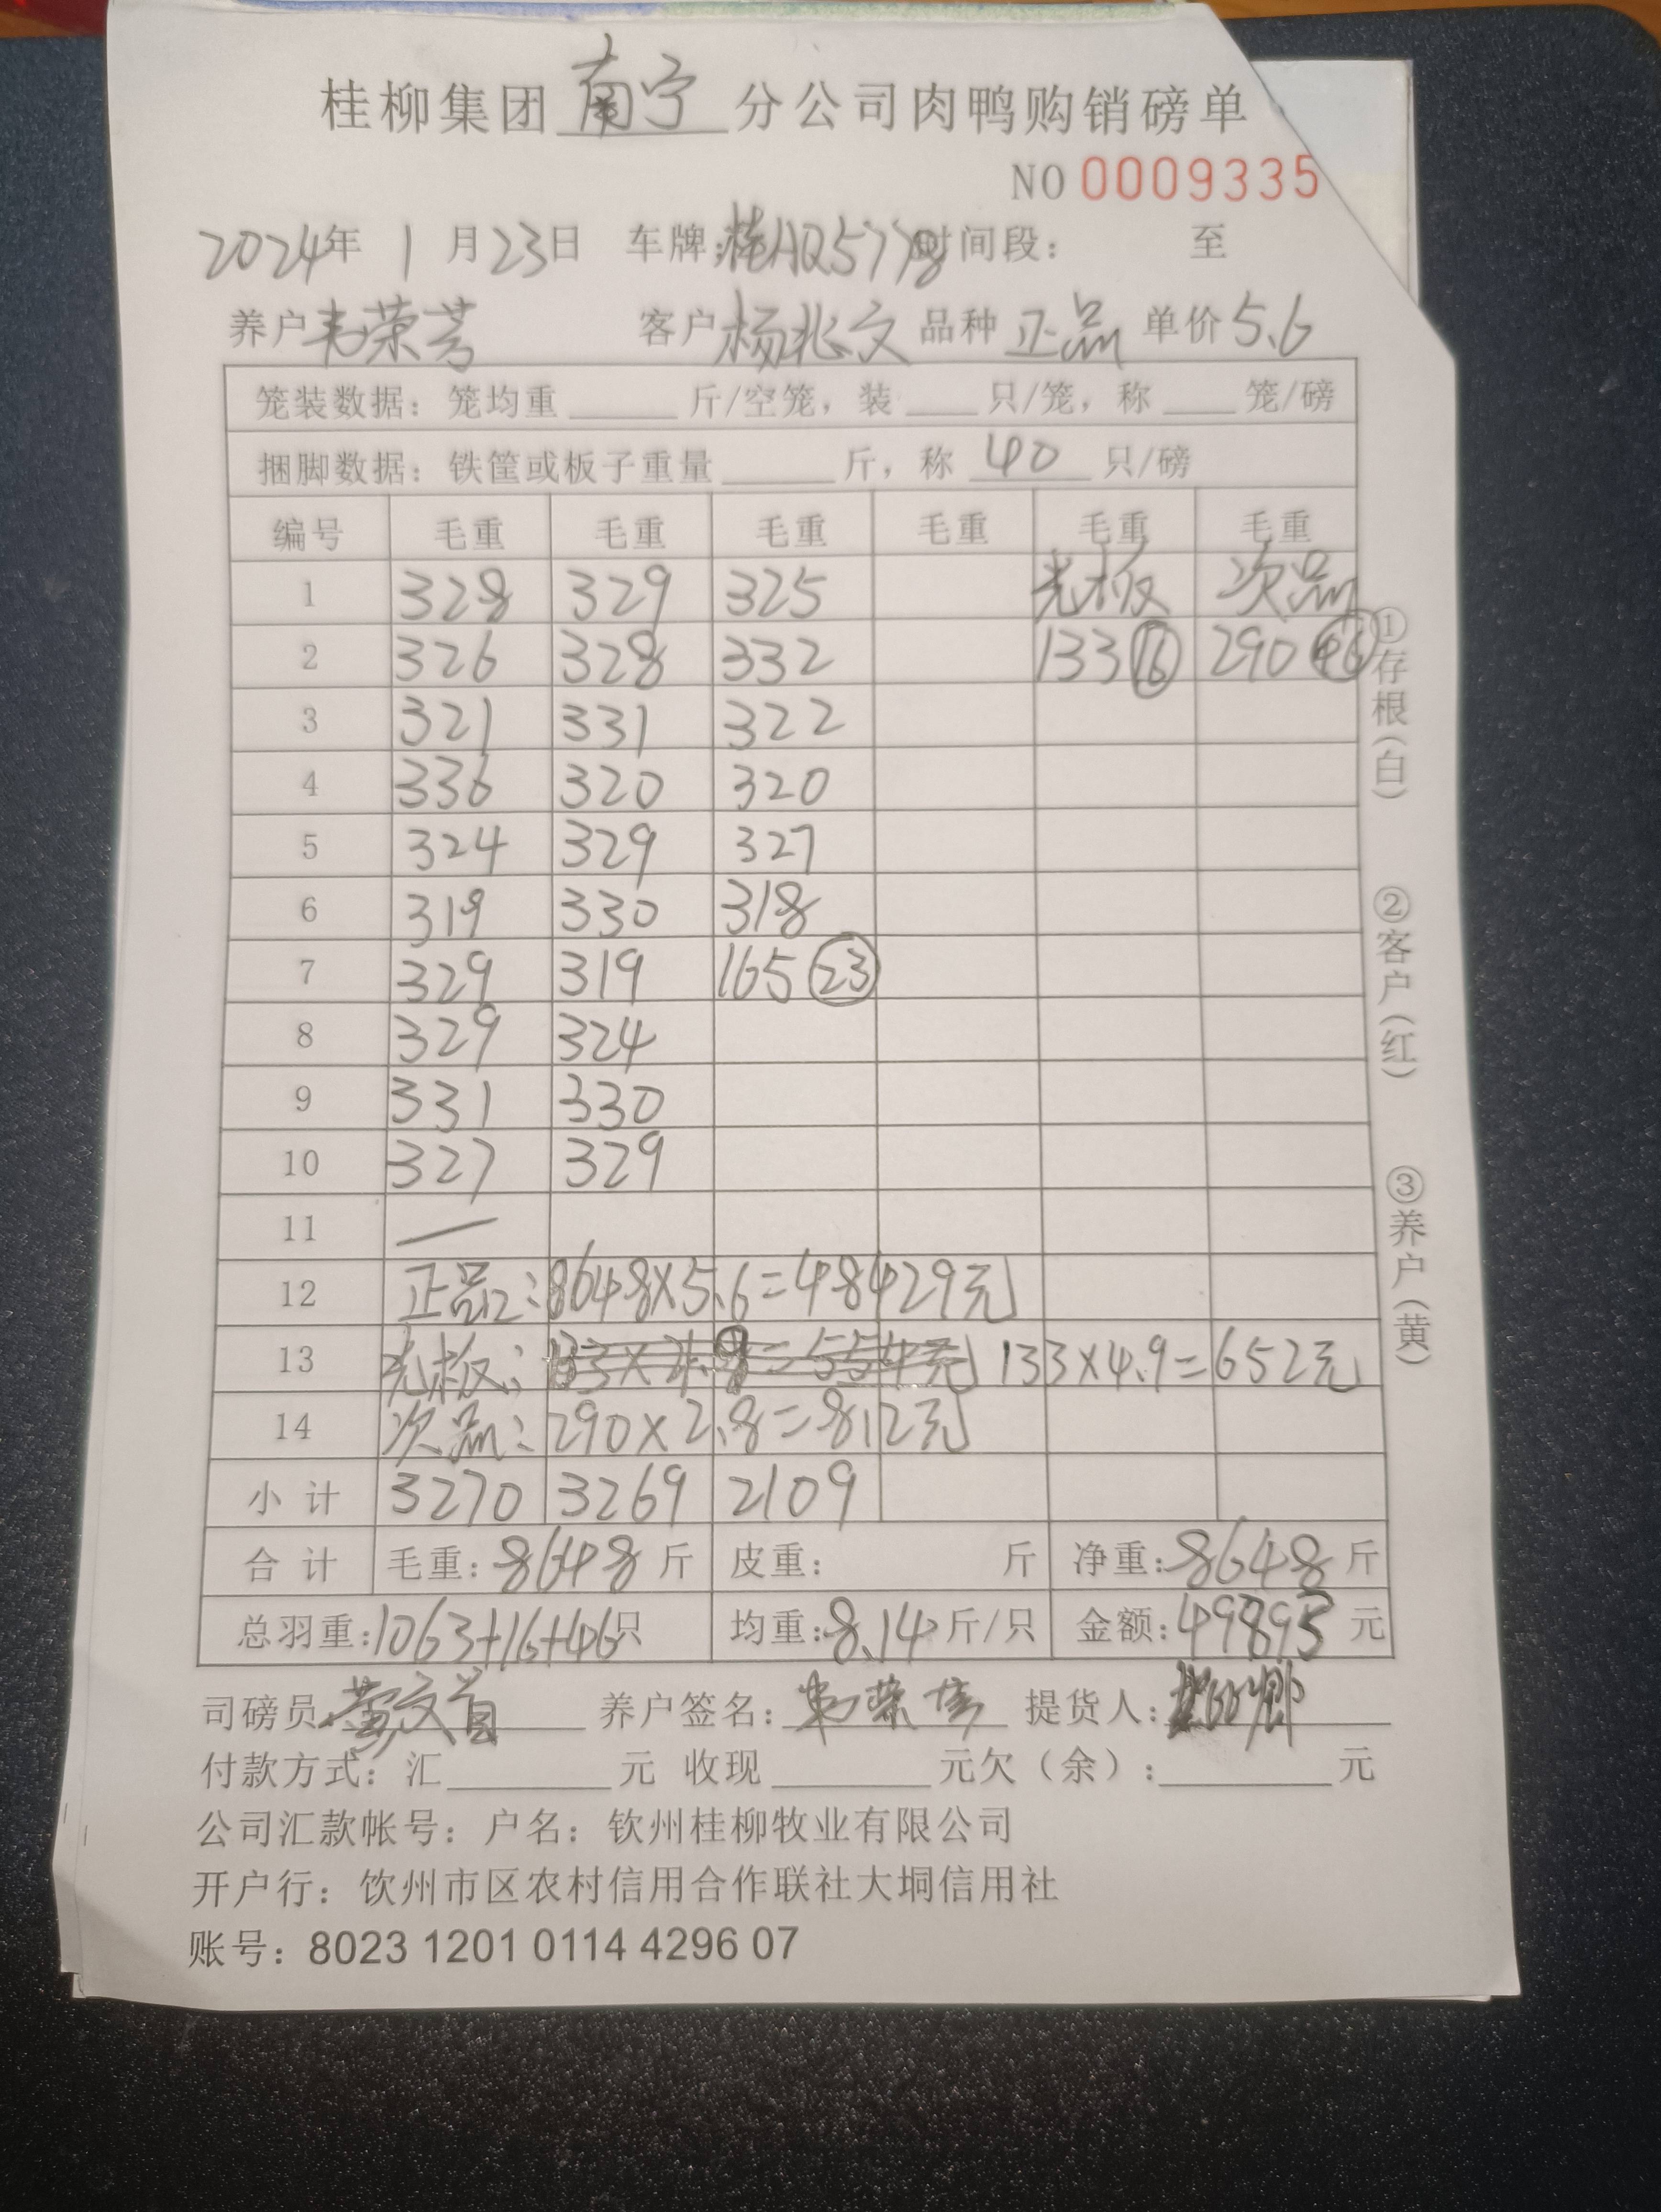 桂柳集团南宁分公司肉鸭购销磅单
NO 0009335
2024年 1 月 23日 车牌:桂AQ5778 时间段: 至
养户韦荣芳 客户杨兆文 品种 正品 单价5.6
笼装数据: 笼均重 斤/空笼, 装 只/笼, 称 笼/磅
捆脚数据: 铁筐或板子重量 斤, 称 40 只/磅
编号 毛重 毛重 毛重 毛重 毛重 毛重
1 328 329 325 光板 次品
2 326 328 332 133 16 290 46
3 321 331 322
4 336 320 320
5 324 329 327
6 319 330 318
7 329 319 165 23
8 329 324
9 331 330
10 327 329
11 —
12 正品:8648×5.6=48429元
13 光板: 133×4.9=652元
14 次品:290×2.8=812元
小计 3270 3269 2109
合计 毛重:8648斤 皮重: 斤 净重:8648斤
总羽重:1063+16+46只 均重:8.14斤/只 金额:49893元
司磅员: 养户签名: 提货人:
付款方式: 汇 元 收现 元欠(余): 元
公司汇款帐号: 户名: 钦州桂柳牧业有限公司
开户行: 钦州市区农村信用合作联社大垌信用社
账号: 8023 1201 0114 4296 07
①存根(白) ②客户(红) ③养户(黄)